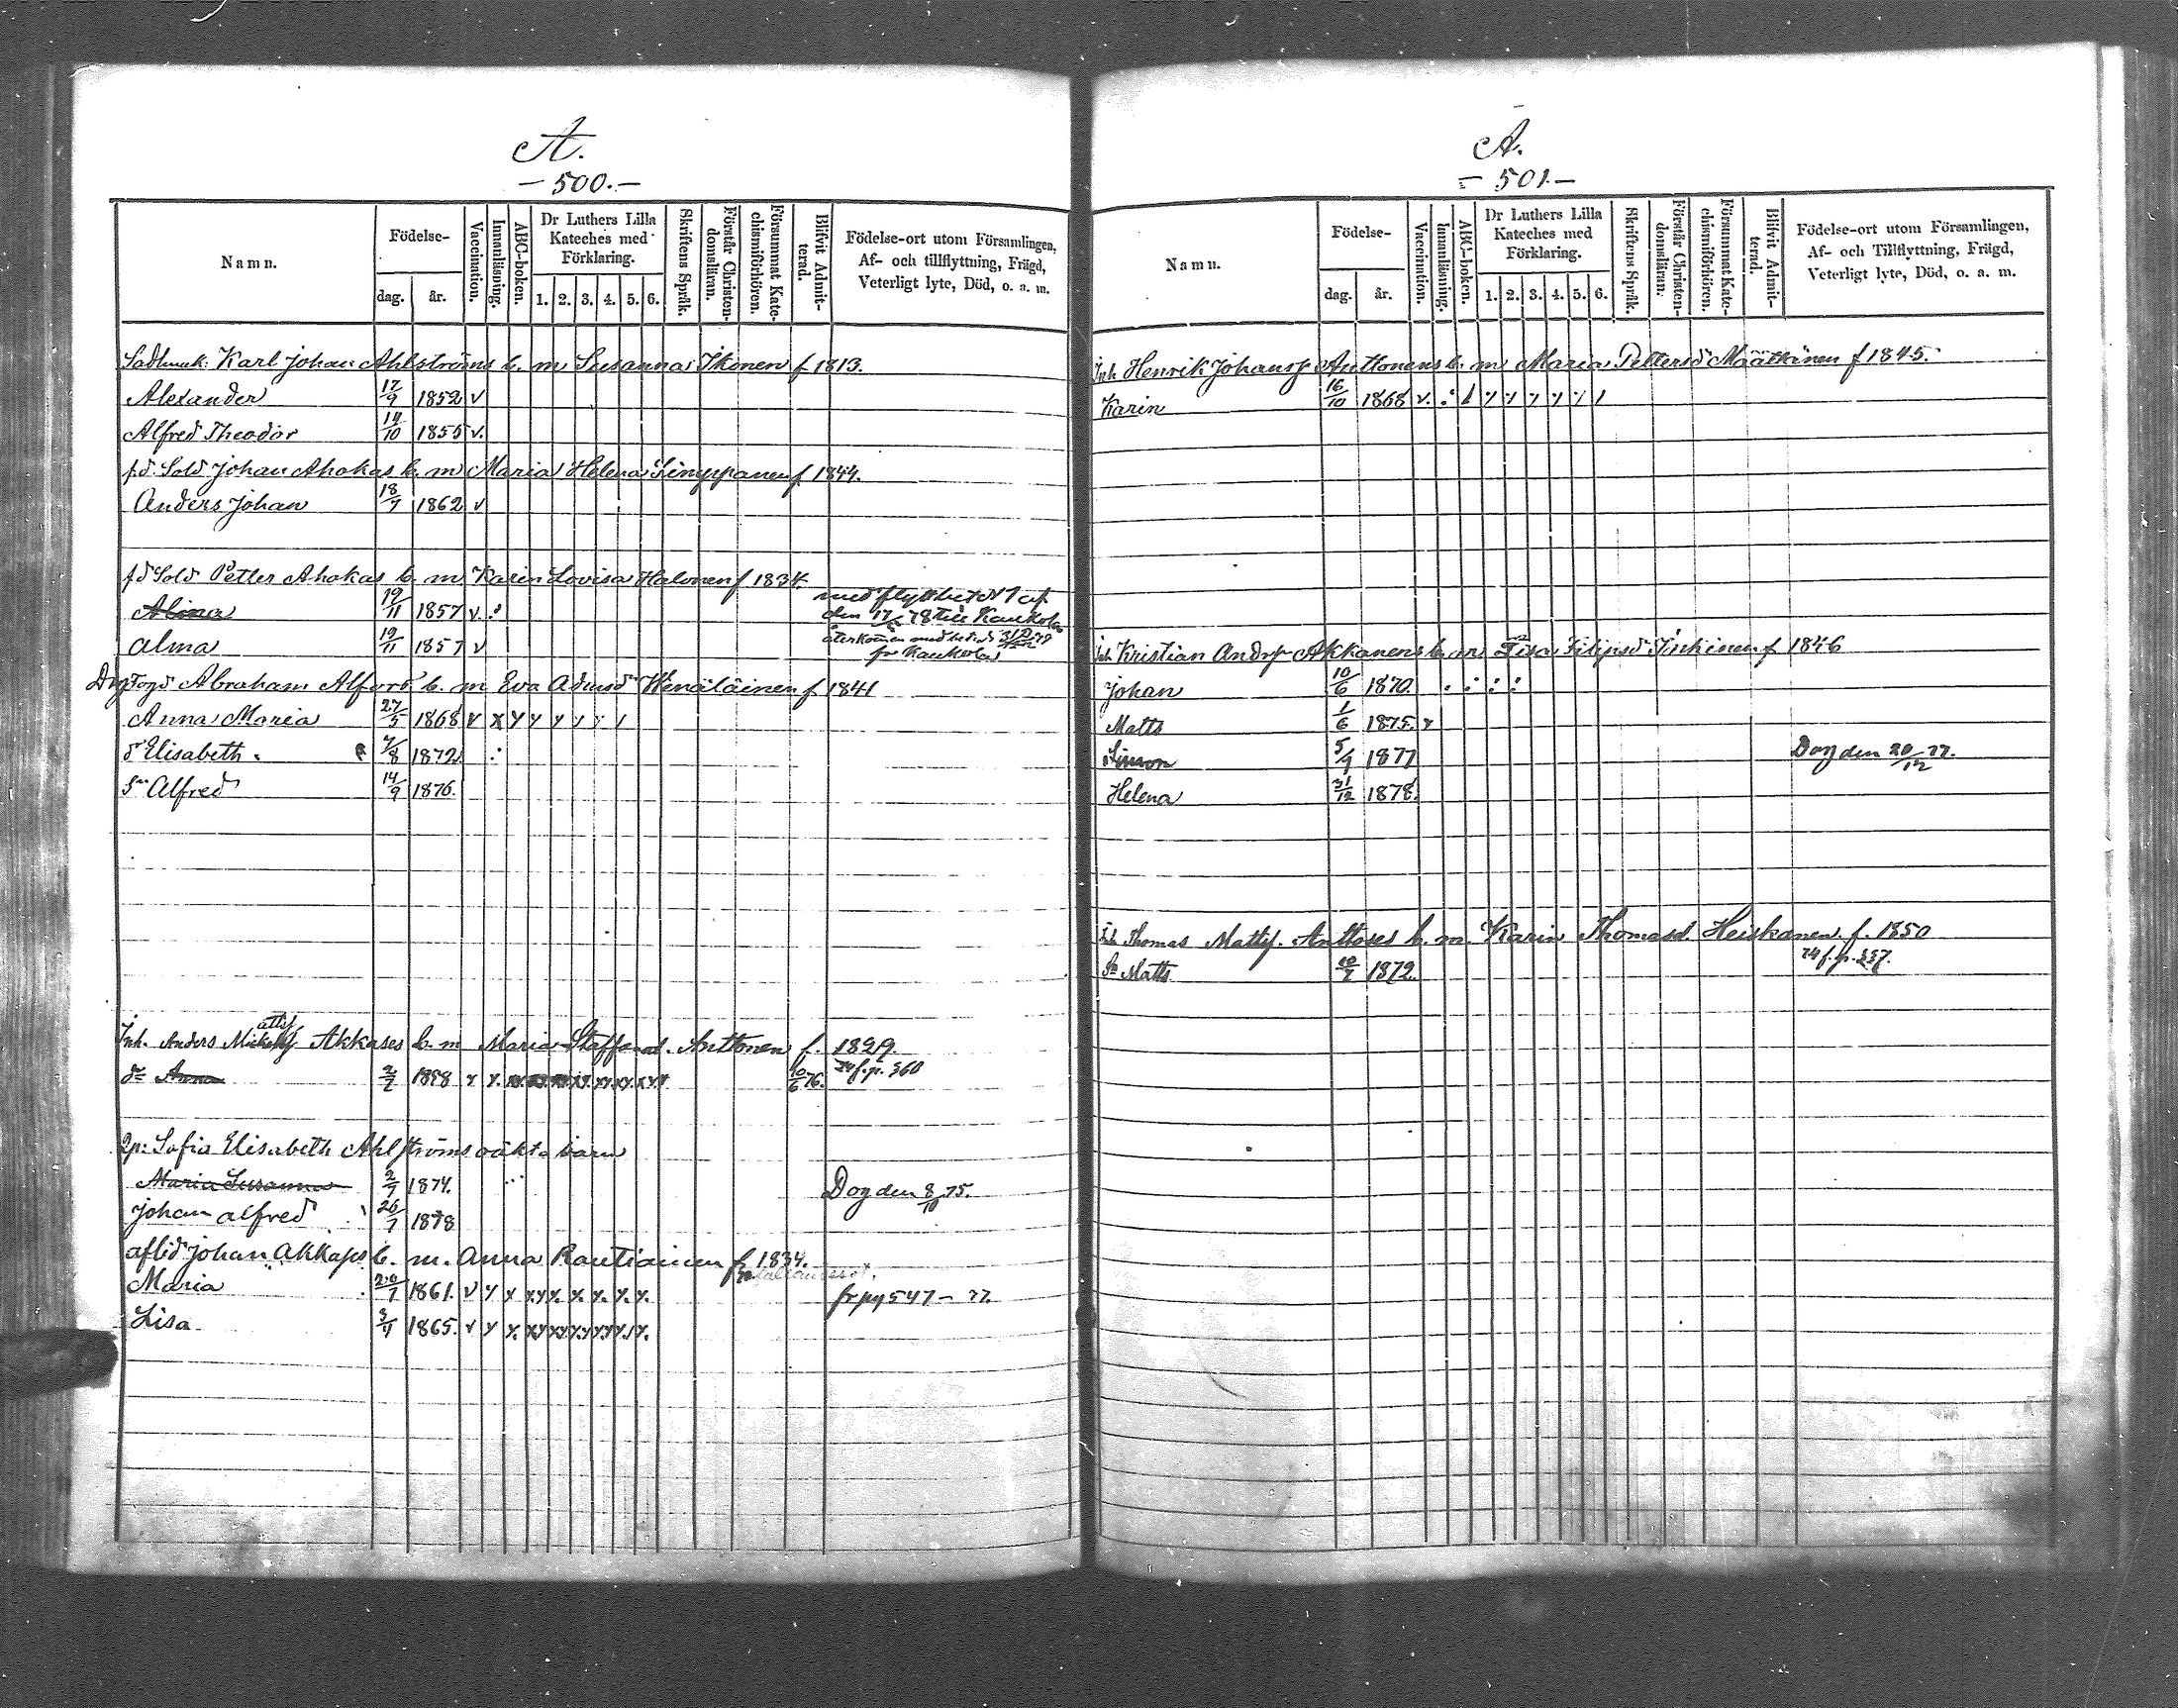 A.
- 500. -
Namn.
Födelse-
dag. år.
Vaccination.
Innanläsning.
ABC-boken.
Dr Luthers Lilla Kateches med Förklaring.
1. 2. 3. 4. 5. 6.
Skriftens Språk.
Förstår Christendomsläran.
Försummat Katechismiförhören.
Blifvit Admitterad.
Födelse-ort utom Församlingen,
Af- och tillflyttning, Frägd,
Veterligt lyte, Död, o. a. m.
Karl Johan Ahlströms b. m Susanna Ikonen f 1813.
Alexander 17/9 1852 v
Alfred Theodor 14/10 1855 v.
fd. Sold Johan Ahokas b. m Maria Helena f 1844.
Anders Johan 18/7 1862 v
fd Sold Petter Ahokas b. m Karin Lovisa Halonen f 1834.
Alina 19/11 1857 v. : med flyttbet N 1 af
den 17/ 78 till Kaukola
Alma 19/11 1857 v återkommen med bet. 79
fr Kaukola
Abraham Alfort b. m Eva Adamsd Wenäläinen f 1841
Anna Maria 27/5 1868 v x y y y y y /
dr Elisabeth 7/8 1872 :
Sn Alfred 14/9 1876.
Inh. Anders Mickelss attss Akkases b. m Maria Staffansd. Anttonen f. 1829
dr Anna 2/2 1858 v y. 10/6 76. 24 f. p. 360
Qp: Sofia Elisabeth Ahlströms oäkta barn
Maria Susanna 2/7 1874. Dog den 8/10 75.
Johan Alfred 26/7 1878
aflid Johan Akkaps b. m. Anna Rautiainen f 1834.
Maria 20/7 1861. v y y x.y y. y. y. y. y. fr pg 547 - 77.
Lisa 3/11 1865. v y y. xy xy xy xy y y.
A.
- 501. -
Namn.
Födelse-
dag. år.
Vaccination.
Innanläsning.
ABC-boken.
Dr Luthers Lilla Kateches med Förklaring.
1. 2. 3. 4. 5. 6.
Skriftens Språk.
Förstår Christendomsläran.
Försummat Katechismiförhören.
Blifvit Admitterad.
Födelse-ort utom Församlingen,
Af- och Tillflyttning, Frägd,
Veterligt lyte, Död, o. a. m.
Inh Henrik Johanss Anttonens b. m Maria Pettersd Määtkinen f 1845.
Karin 16/10 1868 v. : / y y y y y /
Inh Kristian Anderss Akkanens b. m Lisa Filipsd f 1846
Johan 10/6 1870. . : : :
Matts 1/6 1875. v
Simon 5/9 1877 Dog den 20/12 77.
Helena 31/12 1878.
Inh Thomas Mattss. Anttoses b. m. Karin Thomasd. Heiskanen. f. 1850
Sn Matts 20/7 1872. 24 f. p. 337.